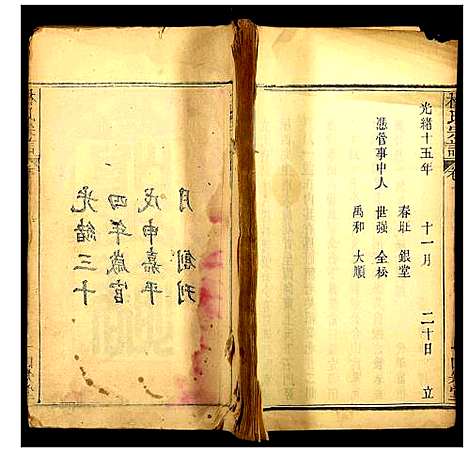 光緒十五年 十一月 二十日 立
春 銀堂
憑管事中人 世强 全松
禹和 大順
光緒三十
四年歲官
戊申嘉平
月 創刊